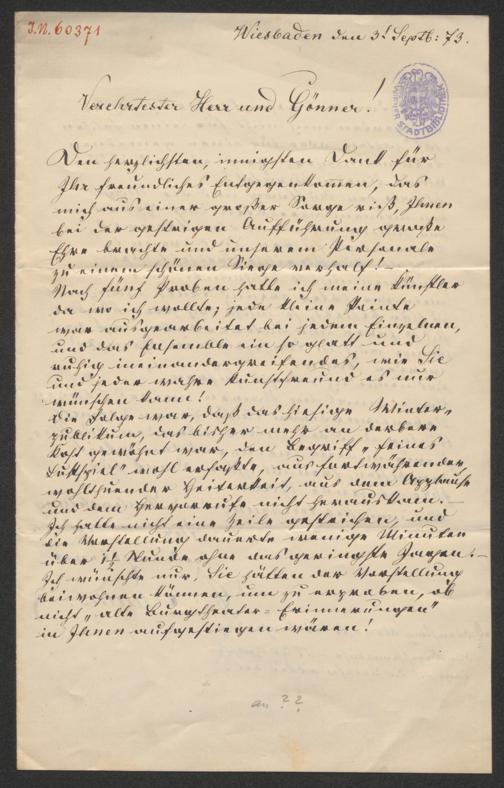 J.N. 60371
Wiesbaden den 3! Septb: 73.
WIENER STADTBIBLIOTHEK
Verehrtester Herr und Gönner!
Den herzlichsten, innigsten Dank für
Ihr freundliches Entgegenkommen, das
mich aus einer großer Sorge riß, Ihnen
bei der gestrigen Aufführung große
Ehre brachte und unserem Personale
zu einem schönen Siege verhalf! –
Nach fünf Proben hatte ich meine Künstler
da wo ich wollte; jede kleine Pointe
war ausgearbeitet bei jedem Einzelnen,
und das Ensemble ein so glatt und
ruhig ineinandergreifendes, wie Sie
und jeder wahre Kunstfreund es nur
wünschen kann!
Die Folge war, daß das hiesige Winter„
publikum, das bisher mehr an derbere
Kost gewöhnt war, den Begriff „feines
Lustspiel" wohl erfaßte, aus fortwährender,
wohlthuender Heiterkeit, aus dem Applause
und dem Hervorrufe nicht herauskam. –
Ich hatte nicht eine Zeile gestrichen, und
die Vorstellung dauerte wenige Minuten
über Stunde ohne das geringste Jagen. –
Ich wünschte nur, Sie hätten der Vorstellung
beiwohnen können, um zu erproben, ob
nicht „alte Burgtheater=Erinnerungen"
in Ihnen aufgestiegen wären!
an ??